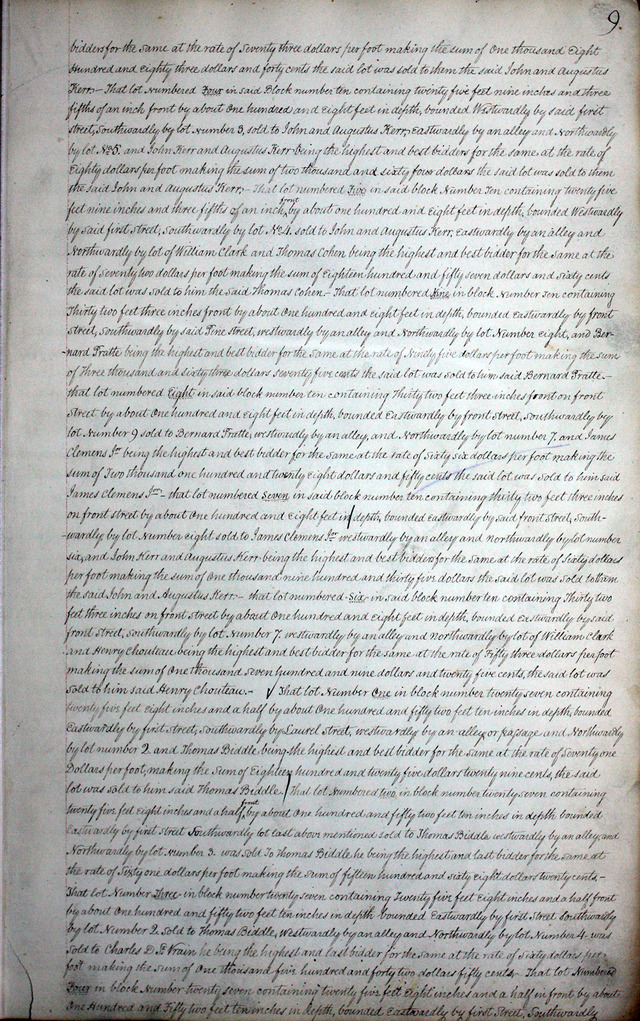 9.
bidders for the same at the rate of Seventy three dollars per foot making the sum of One thousand Eight
Hundred and Eighty three dollars and forty cents the said lot was sold to them the said John and Augustus
Kerr,- That lot Numbered Four in said Block number ten containing twenty five feet nine inches and three
fifths of an inch front by about One hundred and Eight feet in depth, bounded Westwardly by said first
street, Southwardly by lot Number 3, sold to John and Augustus Kerr, Eastwardly by an alley and Northwardly
by lot No 5. and John Kerr and Augustus Kerr being the highest and best bidders for the same at the rate of
Eighty dollars per foot making the sum of two thousand and sixty four dollars the said lot was sold to them
the said John and Augustus Kerr,- That lot numbered Five in said block Number Ten containing twenty five
feet nine inches and three fifths of an inch front by about one hundred and Eight feet in depth, bounded Westwardly
by said first Street, Southwardly by lot No 4. sold to John and Augustus Kerr, Eastwardly by an alley and
Northwardly by lot of William Clark and Thomas Cohen being the highest and best bidder for the same at the
rate of seventy two dollars per foot making the sum of Eighteen hundred and fifty seven dollars and sixty cents
the said lot was sold to him the said Thomas Cohen.- That lot numbered Nine in block Number ten containing
Thirty two feet three inches front by about One hundred and eight feet in depth, bounded Eastwardly by front
Street, Southwardly by said Pine street, westwardly by an alley and Northwardly by lot Number eight, and Ber-
nard Pratte being the highest and best bidder for the same at the rate of Ninety five dollars per foot making the sum
of Three thousand and sixty three dollars seventy five cents the said lot was sold to him said Bernard Pratte.-
that lot numbered Eight in said block number ten containing Thirty two feet three inches front on front
Street by about One hundred and Eight feet in depth, bounded Eastwardly by front Street, Southwardly by
lot Number 9 sold to Bernard Pratte, westwardly by an alley, and Northwardly by lot number 7. and James
Clemens Jr being the highest and best bidder for the same at the rate of Sixty six dollars per foot making the
sum of Two thousand one hundred and twenty Eight dollars and fifty cents the said lot was sold to him said
James Clemens Jr- that lot numbered Seven in said block number ten containing thirty two feet three inches
on front street by about One hundred and Eight feet in depth, bounded Eastwardly by said front Street, South-
wardly by lot Number eight sold to James Clemens Jr westwardly by an alley and northwardly by lot number
six, and John Kerr and Augustus Kerr being the highest and best bidder for the same at the rate of Sixty dollars
per foot making the sum of One thousand nine hundred and thirty five dollars the said lot was sold to them
the said John and Augustus Kerr,- that lot numbered Six in said block number ten containing Thirty two
feet three inches on front street by about One hundred and Eight feet in depth, bounded Eastwardly by said
front Street, Southwardly by lot Number 7. westwardly by an alley and northwardly by lot of William Clark
and Henry Chouteau being the highest and best bidder for the same at the rate of Fifty three dollars per foot
making the sum of One thousand seven hundred and nine dollars and twenty five cents, the said lot was
sold to him said Henry Chouteau.- That lot Number One in block number twenty seven containing
twenty five feet eight inches and a half by about One hundred and fifty two feet ten inches in depth, bounded
Eastwardly by first street, Southwardly by Laurel Street, westwardly by an alley or passage and Northwardly
by lot number 2. and Thomas Biddle being the highest and best bidder for the same at the rate of Seventy one
Dollars per foot, making the Sum of Eighteen hundred and twenty five dollars twenty nine cents, the said
lot was sold to him said Thomas Biddle. That lot Numbered two, in block number twenty seven containing
twenty five feet Eight inches and a half front by about One hundred and fifty two feet ten inches in depth bounded
Eastwardly by first Street Southwardly lot last above mentioned sold to Thomas Biddle westwardly by an alley, and
Northwardly by lot number 3. was Sold To Thomas Biddle he being the highest and last bidder for the same at
the rate of Sixty one dollars per foot making the sum of fifteen hundred and sixty eight dollars twenty cents.-
That lot Number Three in block number twenty seven containing Twenty five feet Eight inches and a half front
by about One hundred and fifty two feet ten inches in depth bounded Eastwardly by first Street Southwardly
by lot Number 2 Sold to Thomas Biddle, Westwardly by an alley and Northwardly by lot Number 4. was
Sold to Charles D. St Vrain he being the highest and last bidder for the same at the rate of Sixty dollars per
foot making the Sum of One thousand five hundred and forty two dollars fifty cents.- That lot Numbered
Four in block Number twenty seven containing twenty five feet Eight inches and a half in front by about
One Hundred and Fifty two feet ten inches in depth, bounded Eastwardly by first Street, Southwardly